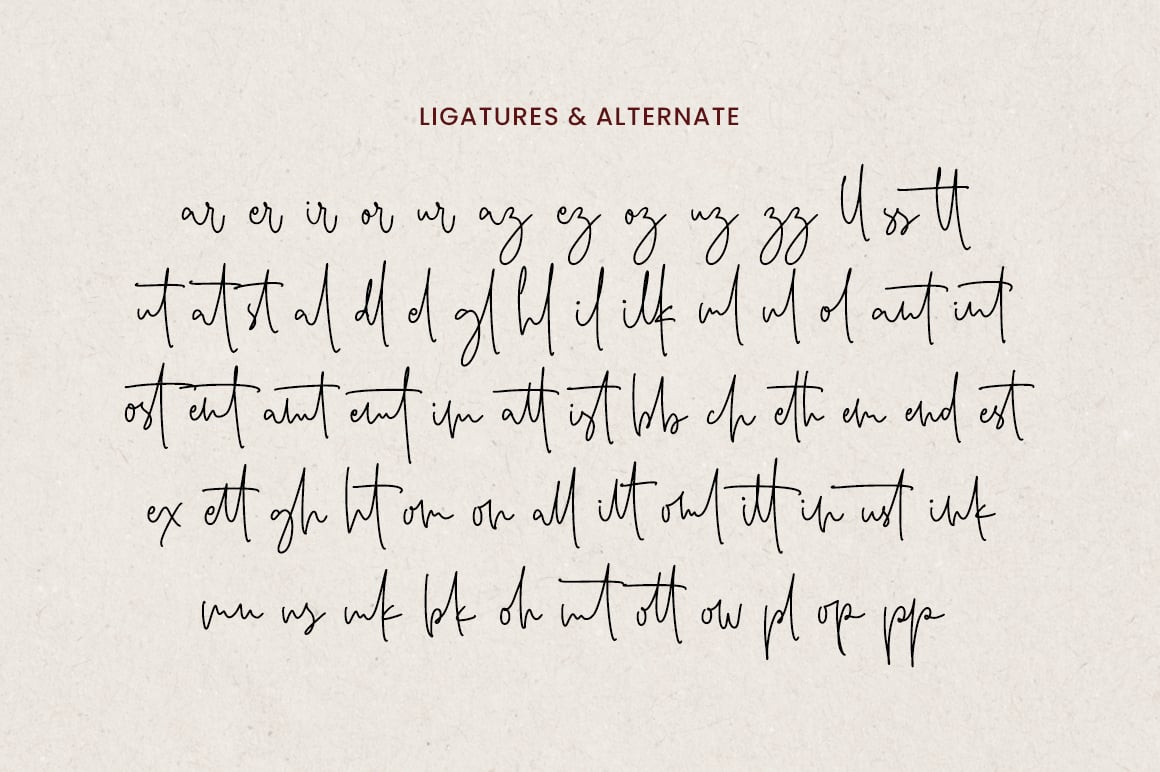 LIGATURES & ALTERNATE
ar er ir or ur az ez oz uz zz ll ss tt
ut at st al dl el gl hl il ilk ml ul ol aut int
ost ent amt emt im att ist bb ch eth em end est
ex ett gh ht om on all ilt oml itt in ust ink
mu ns mk bk oh mt ott ow pl op pp